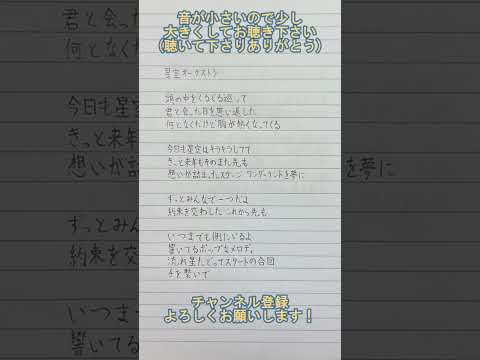 音が小さいので少し
大きくしてお聴き下さい
(聴いて下さりありがとう)
星空オーケストラ
頭の中をくるくる巡って
君と会った日を思い返した
何となくだけど胸が熱くなってくる
今日も星空はキラキラしてて
きっと来年もそのまた先も
想いが詰まったステージ ワンダーランドを夢に
ずっとみんなで一つだよ
約束を交わした これから先も
いつまでも側にいるよ
響いてるポップなメロディ
流れ星たどってスタートの合図
手を繋いで
チャンネル登録
よろしくお願いします!